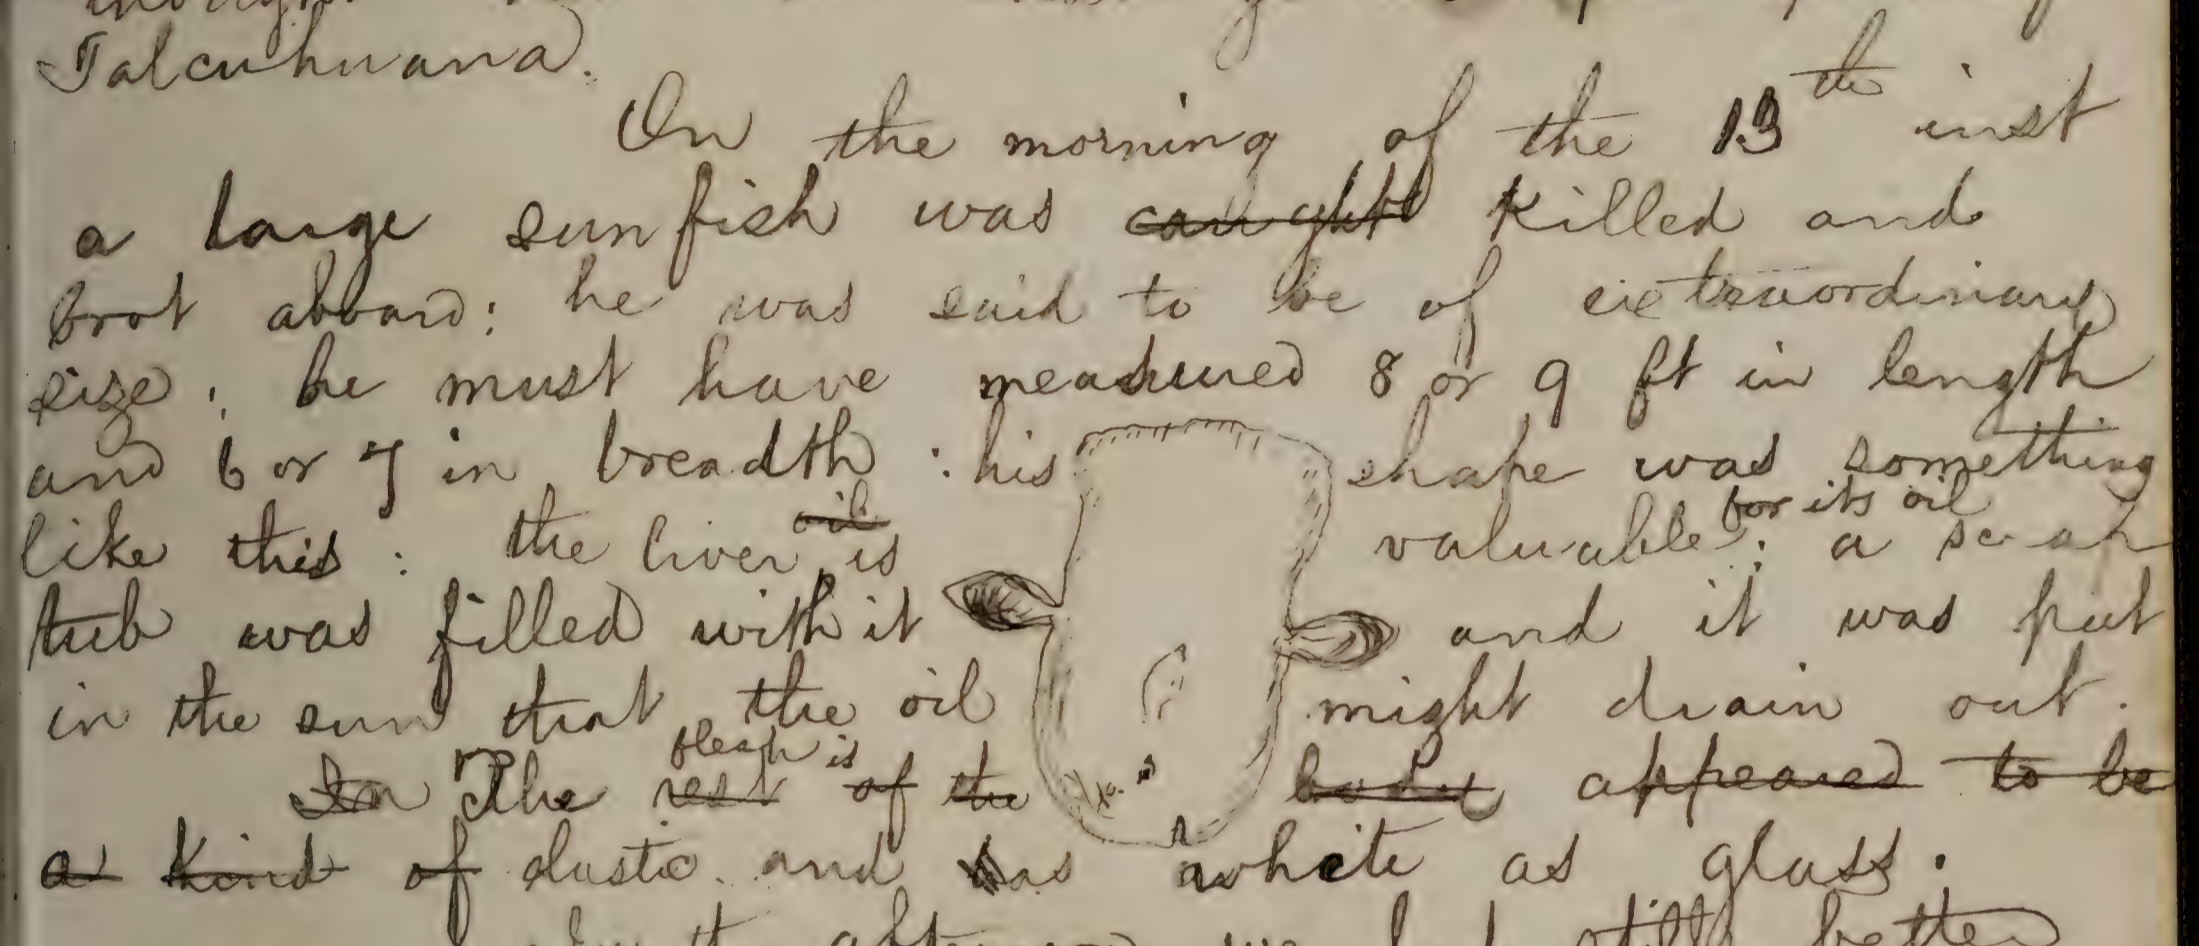 Talcuhuana.
On the morning of the 13th inst
a large sunfish was caught killed and
brot abboard: he was said to be of extraordinary
size; he must have measured 8 or 9 ft in length
and 6 or 7 in breadth: his shape was something
like this: the liver oil is valuable for its oil; a scrap
tub was filled with it and it was put
in the sun that the oil might drain out.
In The rest flesh is of the body appeared to be
a kind of elastic and as white as glass.